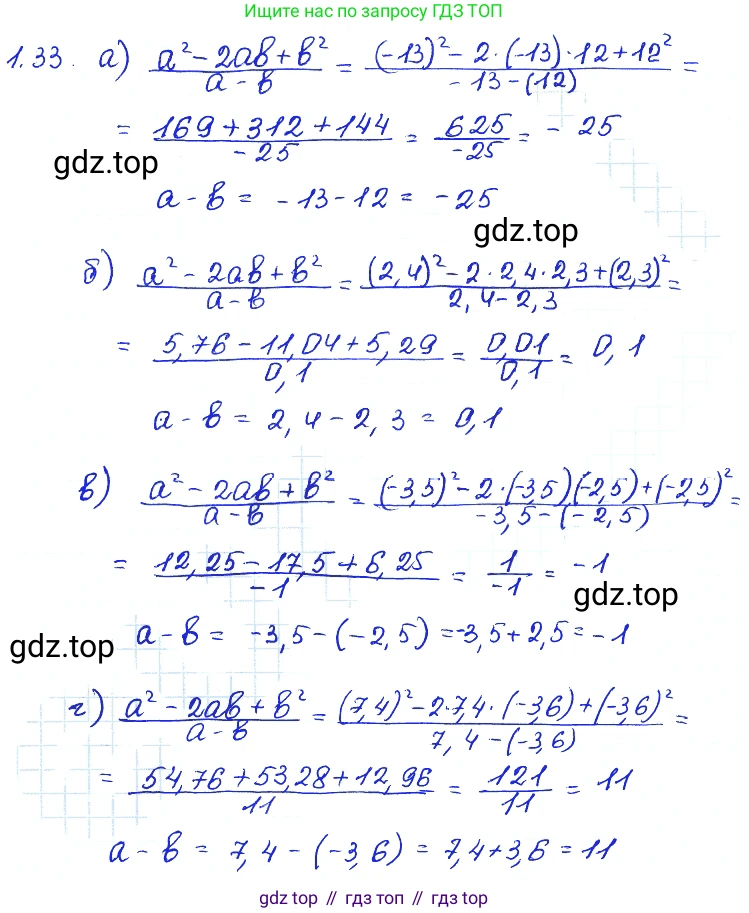 Ищите нас по запросу ГДЗ ТОП
1.33. а) (a² - 2ab + b²)/(a - b) = ((-13)² - 2·(-13)·12 + 12²)/(-13 - (12)) =
= (169 + 312 + 144)/(-25) = 625/(-25) = - 25
gdz.top
a - b = -13 - 12 = -25
gdz.top
б) (a² - 2ab + b²)/(a - b) = ((2,4)² - 2·2,4·2,3 + (2,3)²)/(2,4 - 2,3) =
= (5,76 - 11,04 + 5,29)/(0,1) = 0,01/0,1 = 0,1
a - b = 2,4 - 2,3 = 0,1
в) (a² - 2ab + b²)/(a - b) = ((-3,5)² - 2·(-3,5)(-2,5) + (-2,5)²)/(-3,5 - (-2,5)) =
= (12,25 - 17,5 + 6,25)/(-1) = 1/(-1) = -1
gdz.top
gdz.top
a - b = -3,5 - (-2,5) = -3,5 + 2,5 = -1
г) (a² - 2ab + b²)/(a - b) = ((7,4)² - 2·7,4·(-3,6) + (-3,6)²)/(7,4 - (-3,6)) =
= (54,76 + 53,28 + 12,96)/11 = 121/11 = 11
a - b = 7,4 - (-3,6) = 7,4 + 3,6 = 11
gdz top // гдз топ // gdz.top